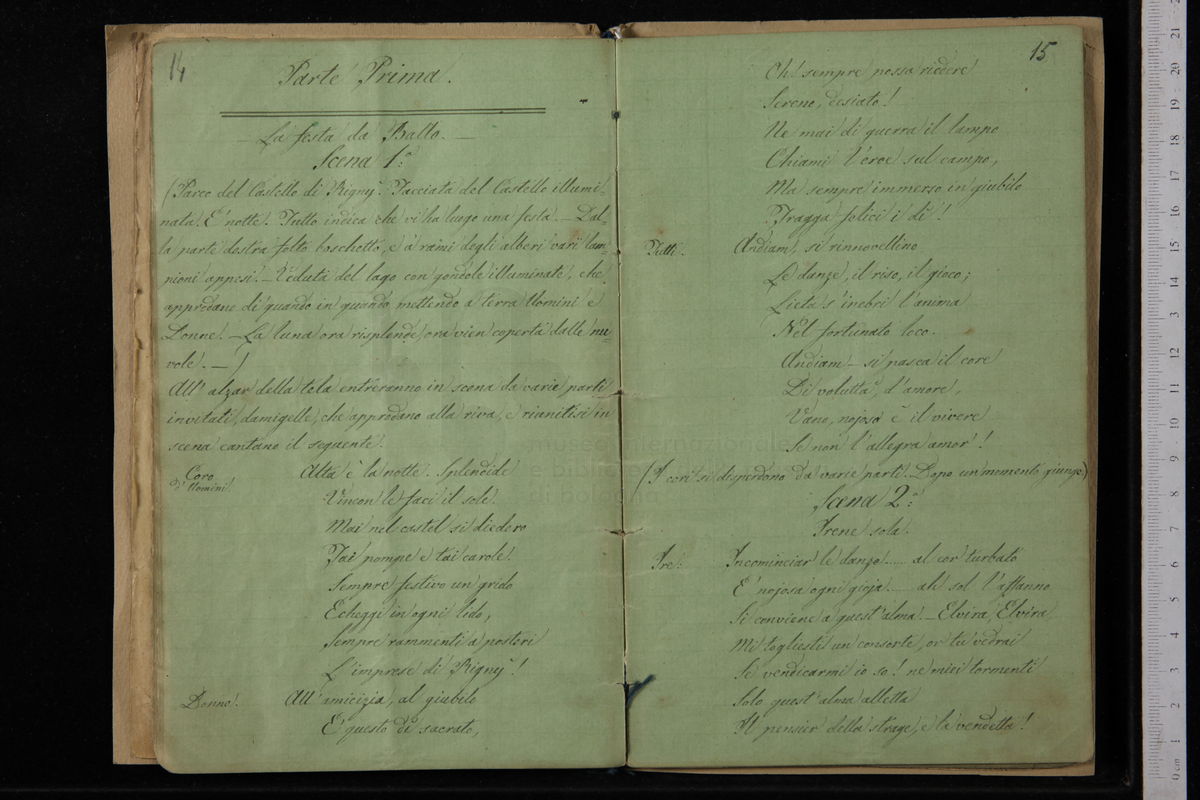 14
Parte Prima.
La festa da Ballo. —
Scena 1ª
(Parco del Castello di Rigny. Facciata del Castello illumi-
nata. E' notte. Tutto indica che vi ha luogo una festa. — Dal-
la parte destra folto boschetto, e a' rami degli alberi varii lam-
pioni appesi. — Veduta del lago con gondole illuminate, che
approdano di quando in quando mettendo a terra Uomini e
Donne. — La luna ora risplende, ora vien coperta dalle nu-
vole. —)
All' alzar della tela entreranno in scena da varie parti
invitati, damigelle, che approdano alla riva, e riunitisi in
scena cantano il seguente.
Coro
d'Uomini.
Alta è la notte. Splendide
Vincon le faci il sole.
Mai nel castel si diedero
Tai pompe e tai carole.
Sempre festivo un grido
Echeggi in ogni lido,
Sempre rammenti a posteri
L' imprese di Rigny!
Donne.
All' amicizia, al giubilo
E' questo dì sacrato,
15
Oh! sempre possa riedere
Sereno, desiato!
Ne mai di guerra il lampo
Chiami l'eroe sul campo,
Ma sempre immerso in giubilo
Tragga felici i dì!
Tutti.
Andiam, si rinnovellino
Le danze, il riso, il gioco;
Lieta s'inebri l'anima
Nel fortunato loco.
Andiam — si pasca il core
Di voluttà, d'amore,
Vano, nojoso è il vivere
Se non l'allegra amor!
(I cori si disperdono da varie parti. Dopo un momento giunge)
Scena 2ª
Irene sola.
Ire:
Incominciar le danze..... al cor turbato
E' nojosa ogni gioja. — ah sol l'affanno
Si conviene a quest'alma. — Elvira, Elvira
Mi togliesti un consorte, or tu vedrai
Se vendicarmi io so! ne miei tormenti
Solo quest'alma alletta
Il pensier della strage, e la vendetta!
museo internazionale
e biblioteca
di bologna
0 cm 1 2 3 4 5 6 7 8 9 10 11 12 13 14 15 16 17 18 19 20 21